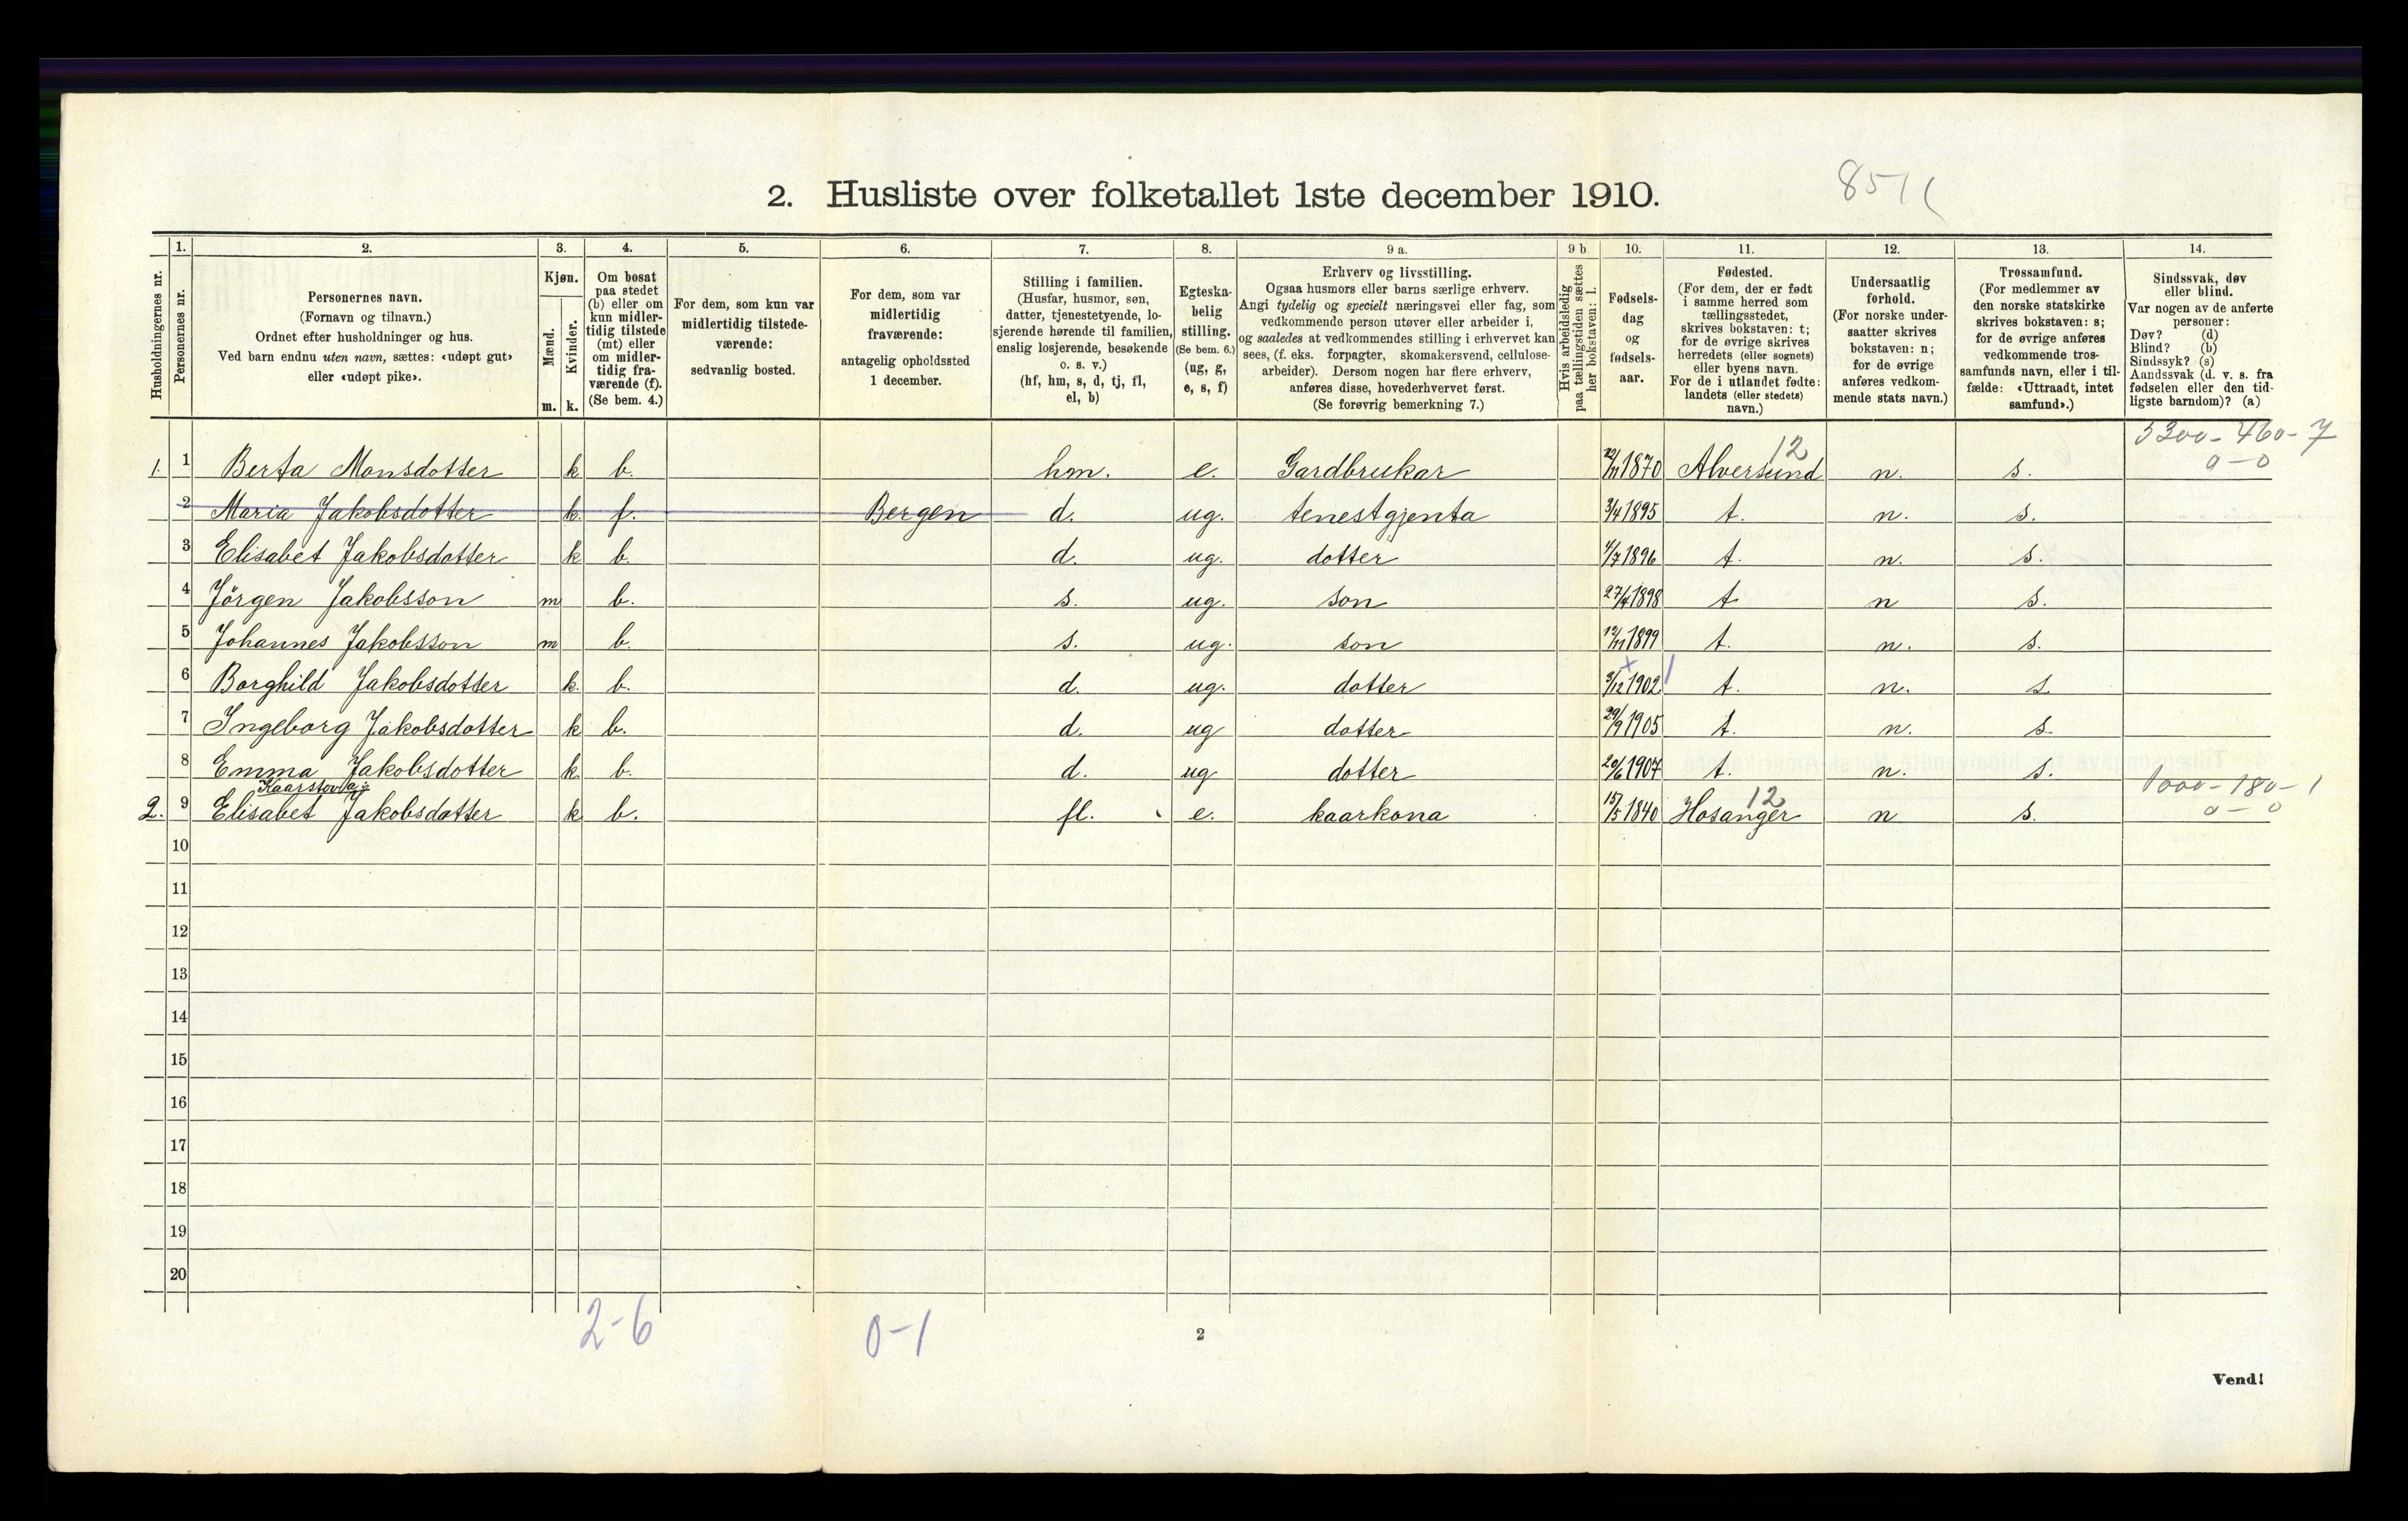 2. Husliste over folketallet 1ste december 1910.
851
Husholdningernes nr.
1.
Personernes nr.
2.
Personernes navn.
(Fornavn og tilnavn.)
Ordnet efter husholdninger og hus.
Ved barn endnu uten navn, sættes: «udøpt gut»
eller «udøpt pike».
3.
Kjøn.
Mænd.
Kvinder.
m. k.
4.
Om bosat
paa stedet
(b) eller om
kun midler-
tidig tilstede
(mt) eller
om midler-
tidig fra-
værende (f).
(Se bem. 4.)
5.
For dem, som kun var
midlertidig tilstede-
værende:
sedvanlig bosted.
6.
For dem, som var
midlertidig
fraværende:
antagelig opholdssted
1 december.
7.
Stilling i familien.
(Husfar, husmor, søn,
datter, tjenestetyende, lo-
sjerende hørende til familien,
enslig losjerende, besøkende
o. s. v.)
(hf, hm, s, d, tj, fl,
el, b)
8.
Egteska-
belig
stilling.
(Se bem. 6.)
(ug, g,
e, s, f)
9 a.
Erhverv og livsstilling.
Ogsaa husmors eller barns særlige erhverv.
Angi tydelig og specielt næringsvei eller fag, som
vedkommende person utøver eller arbeider i,
og saaledes at vedkommendes stilling i erhvervet kan
sees, (f. eks. forpagter, skomakersvend, cellulose-
arbeider). Dersom nogen har flere erhverv,
anføres disse, hovederhvervet først.
(Se forøvrig bemerkning 7.)
9 b
Hvis arbeidsledig
paa tællingstiden sættes
her bokstaven: l.
10.
Fødsels-
dag
og
fødsels-
aar.
11.
Fødested.
(For dem, der er født
i samme herred som
tællingsstedet,
skrives bokstaven: t;
for de øvrige skrives
herredets (eller sognets)
eller byens navn.
For de i utlandet fødte:
landets (eller stedets)
navn.)
12.
Undersaatlig
forhold.
(For norske under-
saatter skrives
bokstaven: n;
for de øvrige
anføres vedkom-
mende stats navn.)
13.
Trossamfund.
(For medlemmer av
den norske statskirke
skrives bokstaven: s;
for de øvrige anføres
vedkommende tros-
samfunds navn, eller i til-
fælde: «Uttraadt, intet
samfund».)
14.
Sindssvak, døv
eller blind.
Var nogen av de anførte
personer:
Døv? (d)
Blind? (b)
Sindssyk? (s)
Aandssvak (d. v. s. fra
fødselen eller den tid-
ligste barndom)? (a)
12 5300-460-7
1. 1 Berta Monsdotter k b. hm. e. Gardbrukar 1870 Alversund n. s. 0-0
2 Maria Jakobsdotter k. f. Bergen d. ug. tenestgjenta 3/4 1895 t. n. s.
3 Elisabet Jakobsdotter k b. d. ug. dotter 4/7 1896 t. n. s.
4 Jörgen Jakobsson m b. s. ug. son 27/4 1898 t n s.
5 Johannes Jakobsson m b. s. ug. son 12/11 1899 t. n. s.
6 Borghild Jakobsdotter k. b. d. ug. dotter 3/12 1902 t. n. s
7 Ingeborg Jakobsdotter k b. d. ug dotter 29/9 1905 t. n. s
8 Emma Jakobsdotter k. b. d. ug dotter 20/6 1907 t. n. s.
12 1000-180-1
2. 9 Elisabet Jakobsdotter k b. fl. e. kaarkona 15/5 1840 Hosanger n s. 0-0
10
11
12
13
14
15
16
17
18
19
20
2-6 0-1
2
Vend!